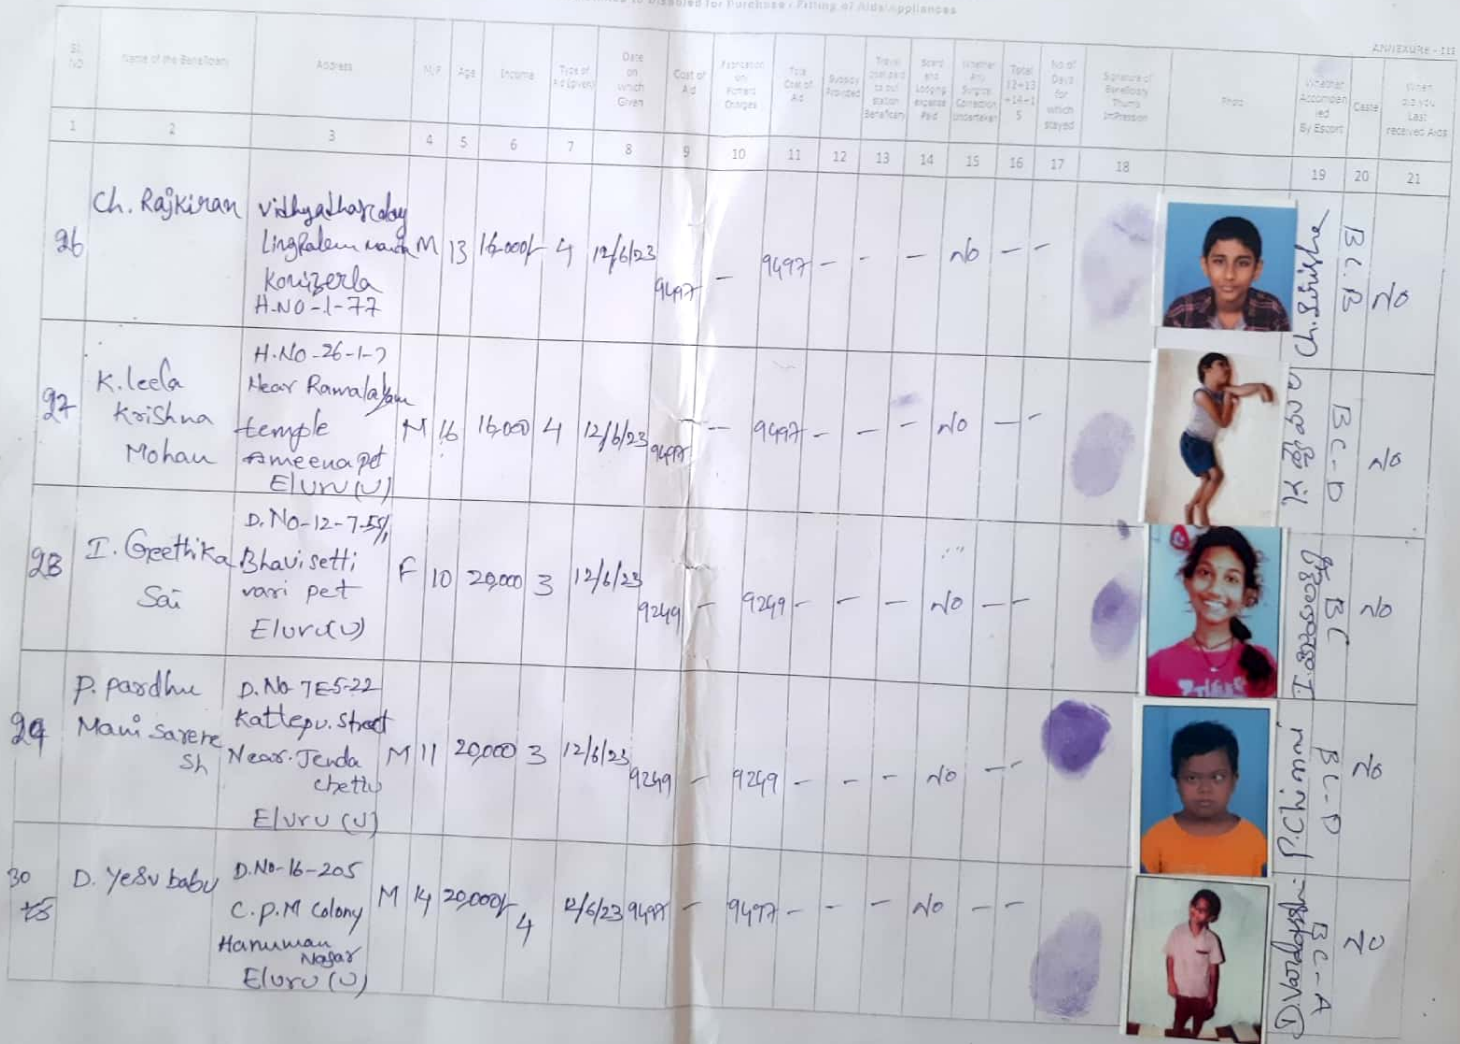 to Disabled for Purchase / Fitting of Aids/Appliances
ANNEXURE - III
Sl. NO
Name of the Beneficiary
Address
M/F
Age
Income
Type of Aid (given)
Date on which Given
Cost of Aid
Total Cost of Aid
Subsidy Provided
Travel cost paid to out station Beneficiary
Board and Lodging expense Paid
Whether Any Surgical Correction Undertaken
Total 12+13+14+15
No of Days for which stayed
Signature of Beneficiary Thumb Impression
Photo
Whether Accompanied By Escort
Caste
When did you Last received Aids
1 2 3 4 5 6 7 8 9 10 11 12 13 14 15 16 17 18 19 20 21
26
Ch. Rajkiran
H.NO-1-77
M 13 4 12/6/23 9497 - 9497 - - - NO - -
Ch. Sirisha
BC.B
NO
27
K. leela
Krishna
Mohan
H.NO-26-1-7
Near Ramalayam
temple
Ameena pet
Eluru (U)
M 16 4 12/6/23 9497 - 9497 - - - NO - -
BC-D
NO
28
I. Geethika
Sai
Bhavisetti
vari pet
Eluru (U)
F 10 20,000 3 12/6/23 9249 - 9249 - - - NO - -
BC
NO
29
P. pardhu
D.No 7E5-22
Kattepu. street
Near. Jenda
chettu
Eluru (U)
M 11 20,000 3 12/6/23 9249 - 9249 - - - NO - -
P. Chinnari
BC-D
NO
30
D. Yesu babu
D.No-16-205
C.P.M Colony
Hanuman
Nagar
Eluru (U)
M 14 20,000/- 4 12/6/23 9497 - 9497 - - - NO - -
BC-A
NO